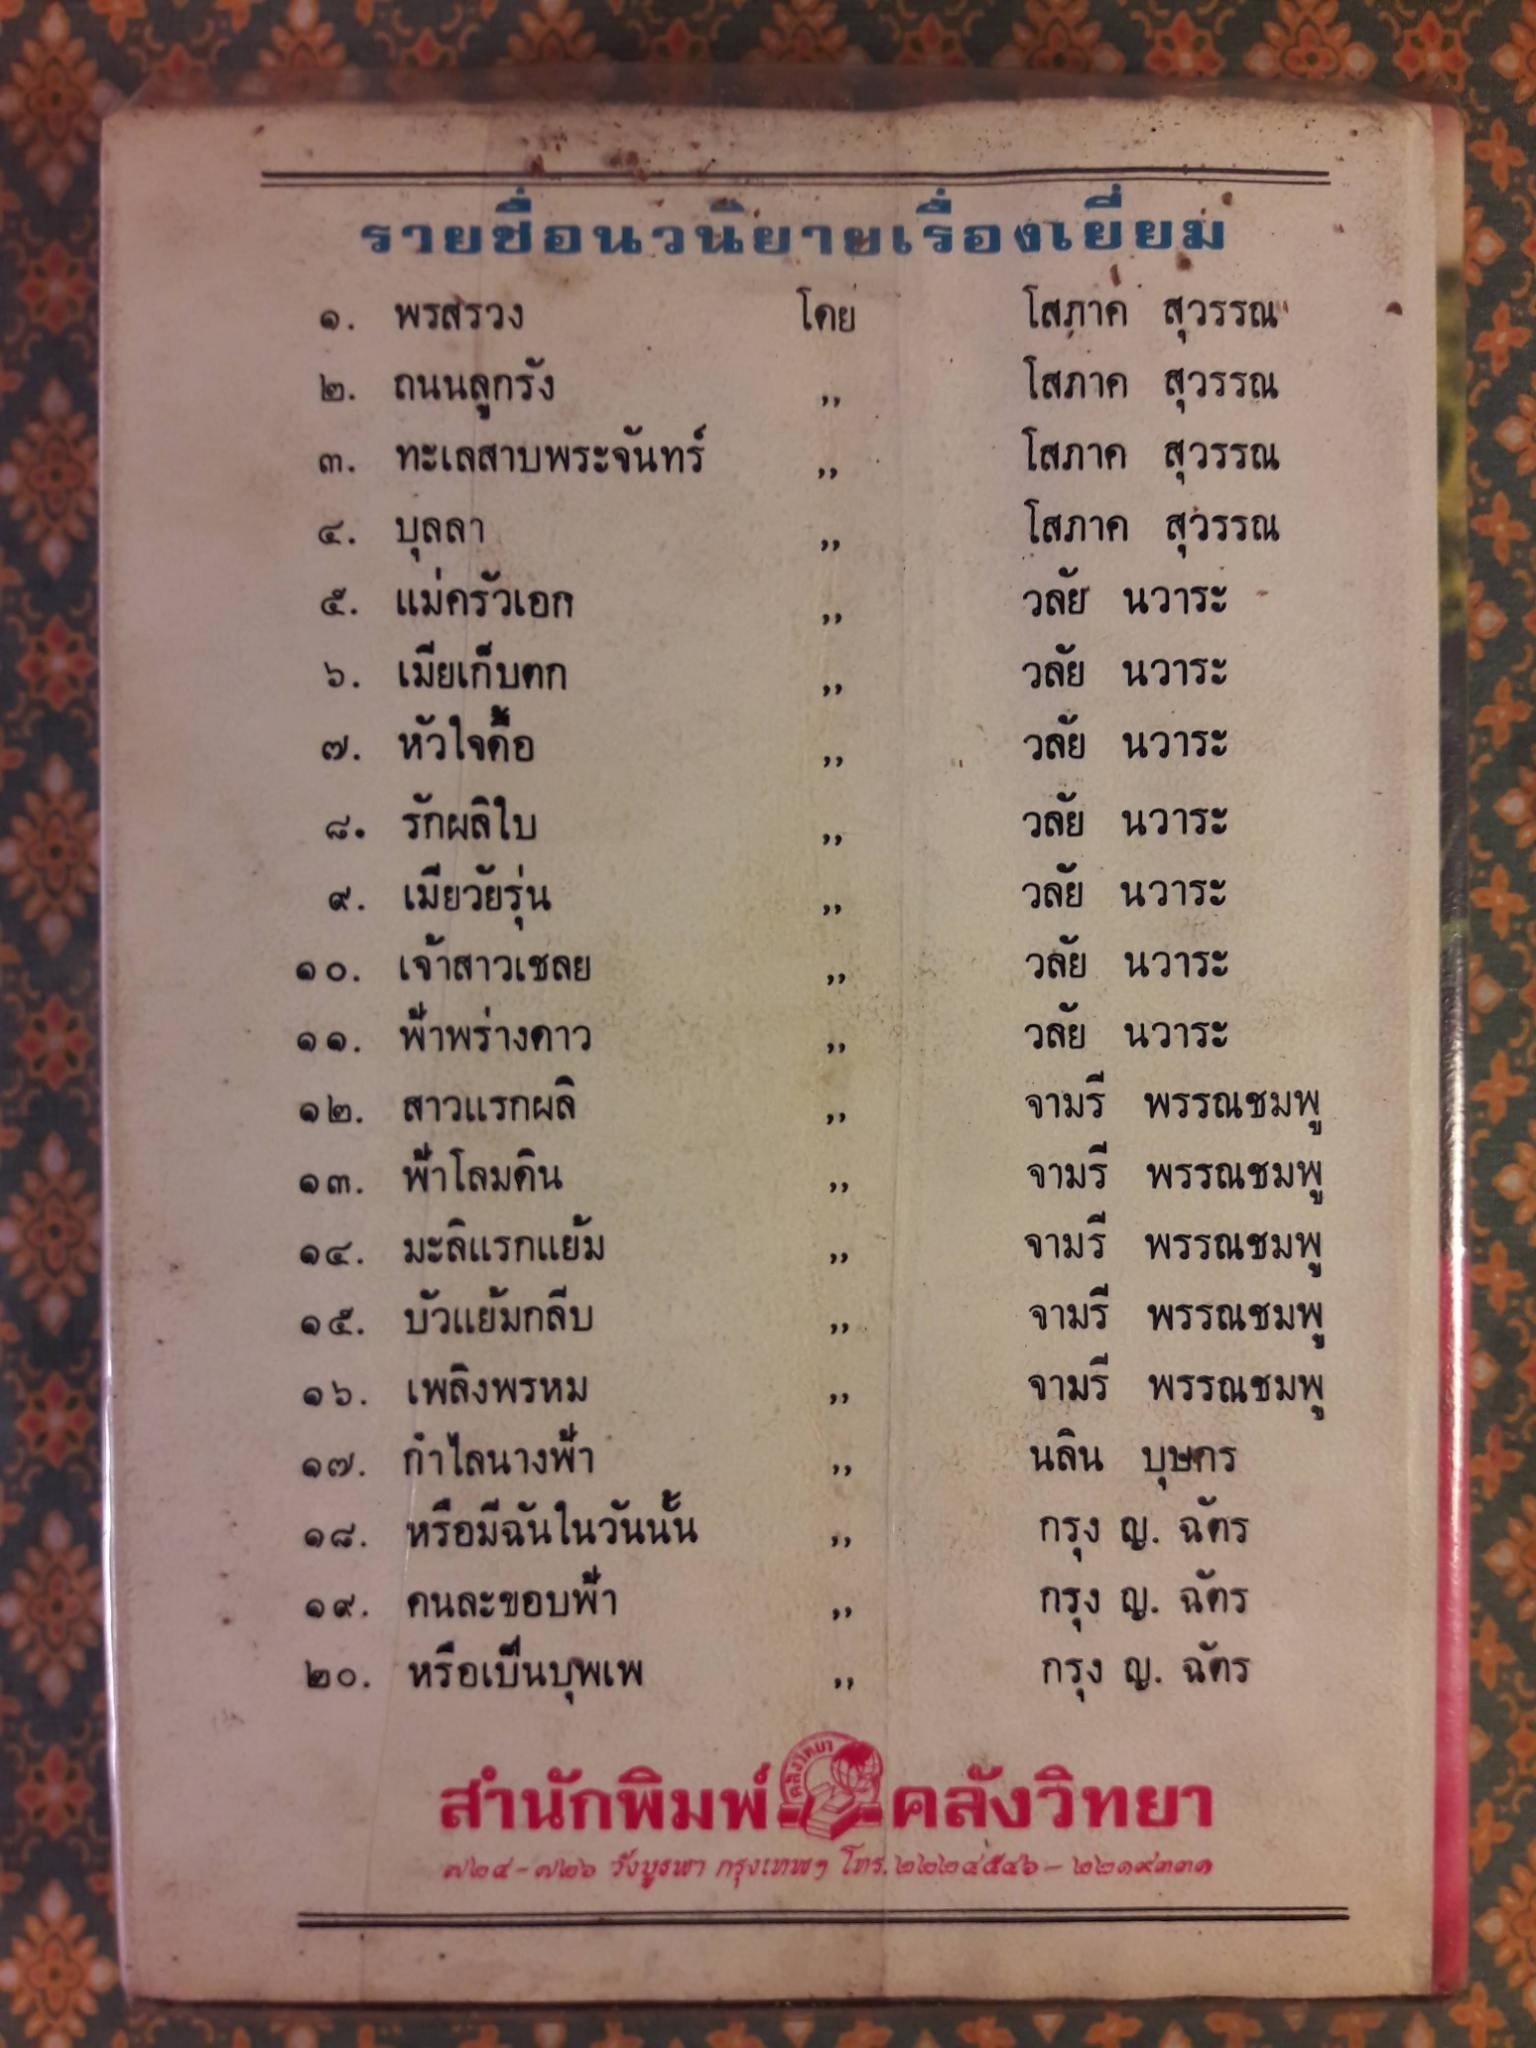 รายชื่อนวนิยายเรื่องเยี่ยม
๑. พรสรวง โดย โสภาค สุวรรณ
๒. ถนนลูกรัง ,, โสภาค สุวรรณ
๓. ทะเลสาบพระจันทร์ ,, โสภาค สุวรรณ
๔. บุลลา ,, โสภาค สุวรรณ
๕. แม่ครัวเอก ,, วลัย นวาระ
๖. เมียเก็บตก ,, วลัย นวาระ
๗. หัวใจดื้อ ,, วลัย นวาระ
๘. รักผลิใบ ,, วลัย นวาระ
๙. เมียวัยรุ่น ,, วลัย นวาระ
๑๐. เจ้าสาวเชลย ,, วลัย นวาระ
๑๑. ฟ้าพร่างดาว ,, วลัย นวาระ
๑๒. สาวแรกผลิ ,, จามรี พรรณชมพู
๑๓. ฟ้าโลมดิน ,, จามรี พรรณชมพู
๑๔. มะลิแรกแย้ม ,, จามรี พรรณชมพู
๑๕. บัวแย้มกลีบ ,, จามรี พรรณชมพู
๑๖. เพลิงพรหม ,, จามรี พรรณชมพู
๑๗. กำไลนางฟ้า ,, นลิน บุษกร
๑๘. หรือมีฉันในวันนั้น ,, กรุง ญ. ฉัตร
๑๙. คนละขอบฟ้า ,, กรุง ญ. ฉัตร
๒๐. หรือเป็นบุพเพ ,, กรุง ญ. ฉัตร
คลังวิทยา
สำนักพิมพ์ คลังวิทยา
๗๒๔-๗๒๖ วังบูรพา กรุงเทพฯ โทร. ๒๒๒๔๕๔๖-๒๒๑๙๓๓๑